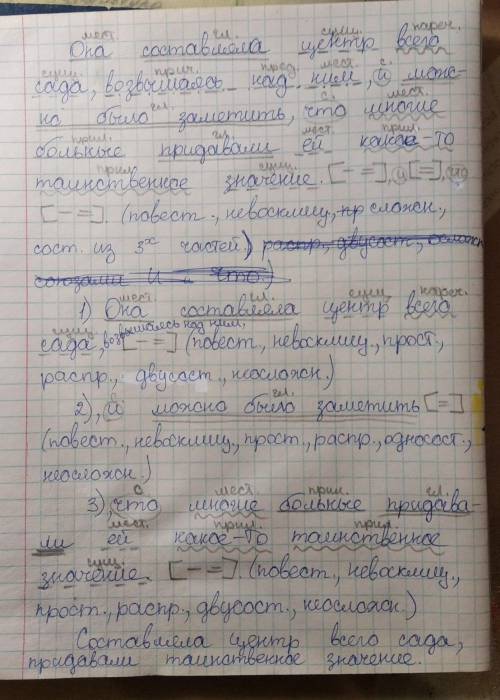 мест. гл. сущ. нареч.
Она составляла центр всего
сущ. прич. пред. мест. с.
сада, возвышаясь над ним, и мож-
гл. с. мест.
но было заметить, что многие
прил. гл. мест. прил.
больные придавали ей какое-то
прил. сущ.
таинственное значение. [– =], и [=], что
[– =]. (повест., невосклиц., пр сложн.,
сост. из 3х частей.) распр., двусост., осложн
союзами и – что.)
мест. гл. сущ. нареч.
1) Она составляла центр всего
сущ. возвышаясь над ним,
сада, [– =] (повест., невосклиц., прост.,
распр., двусост., неосложн.)
2), и можно было заметить [=]
(повест., невосклиц., прост., распр., односост.,
неосложн.)
с мест. прил. гл.
3), что многие больные придава-
мест. прил. прил.
ли ей какое-то таинственное
сущ.
значение. [– =]. (повест., невосклиц.,
прост., распр., двусост., неосложн.)
Составляла центр всего сада,
придавали таинственное значение.